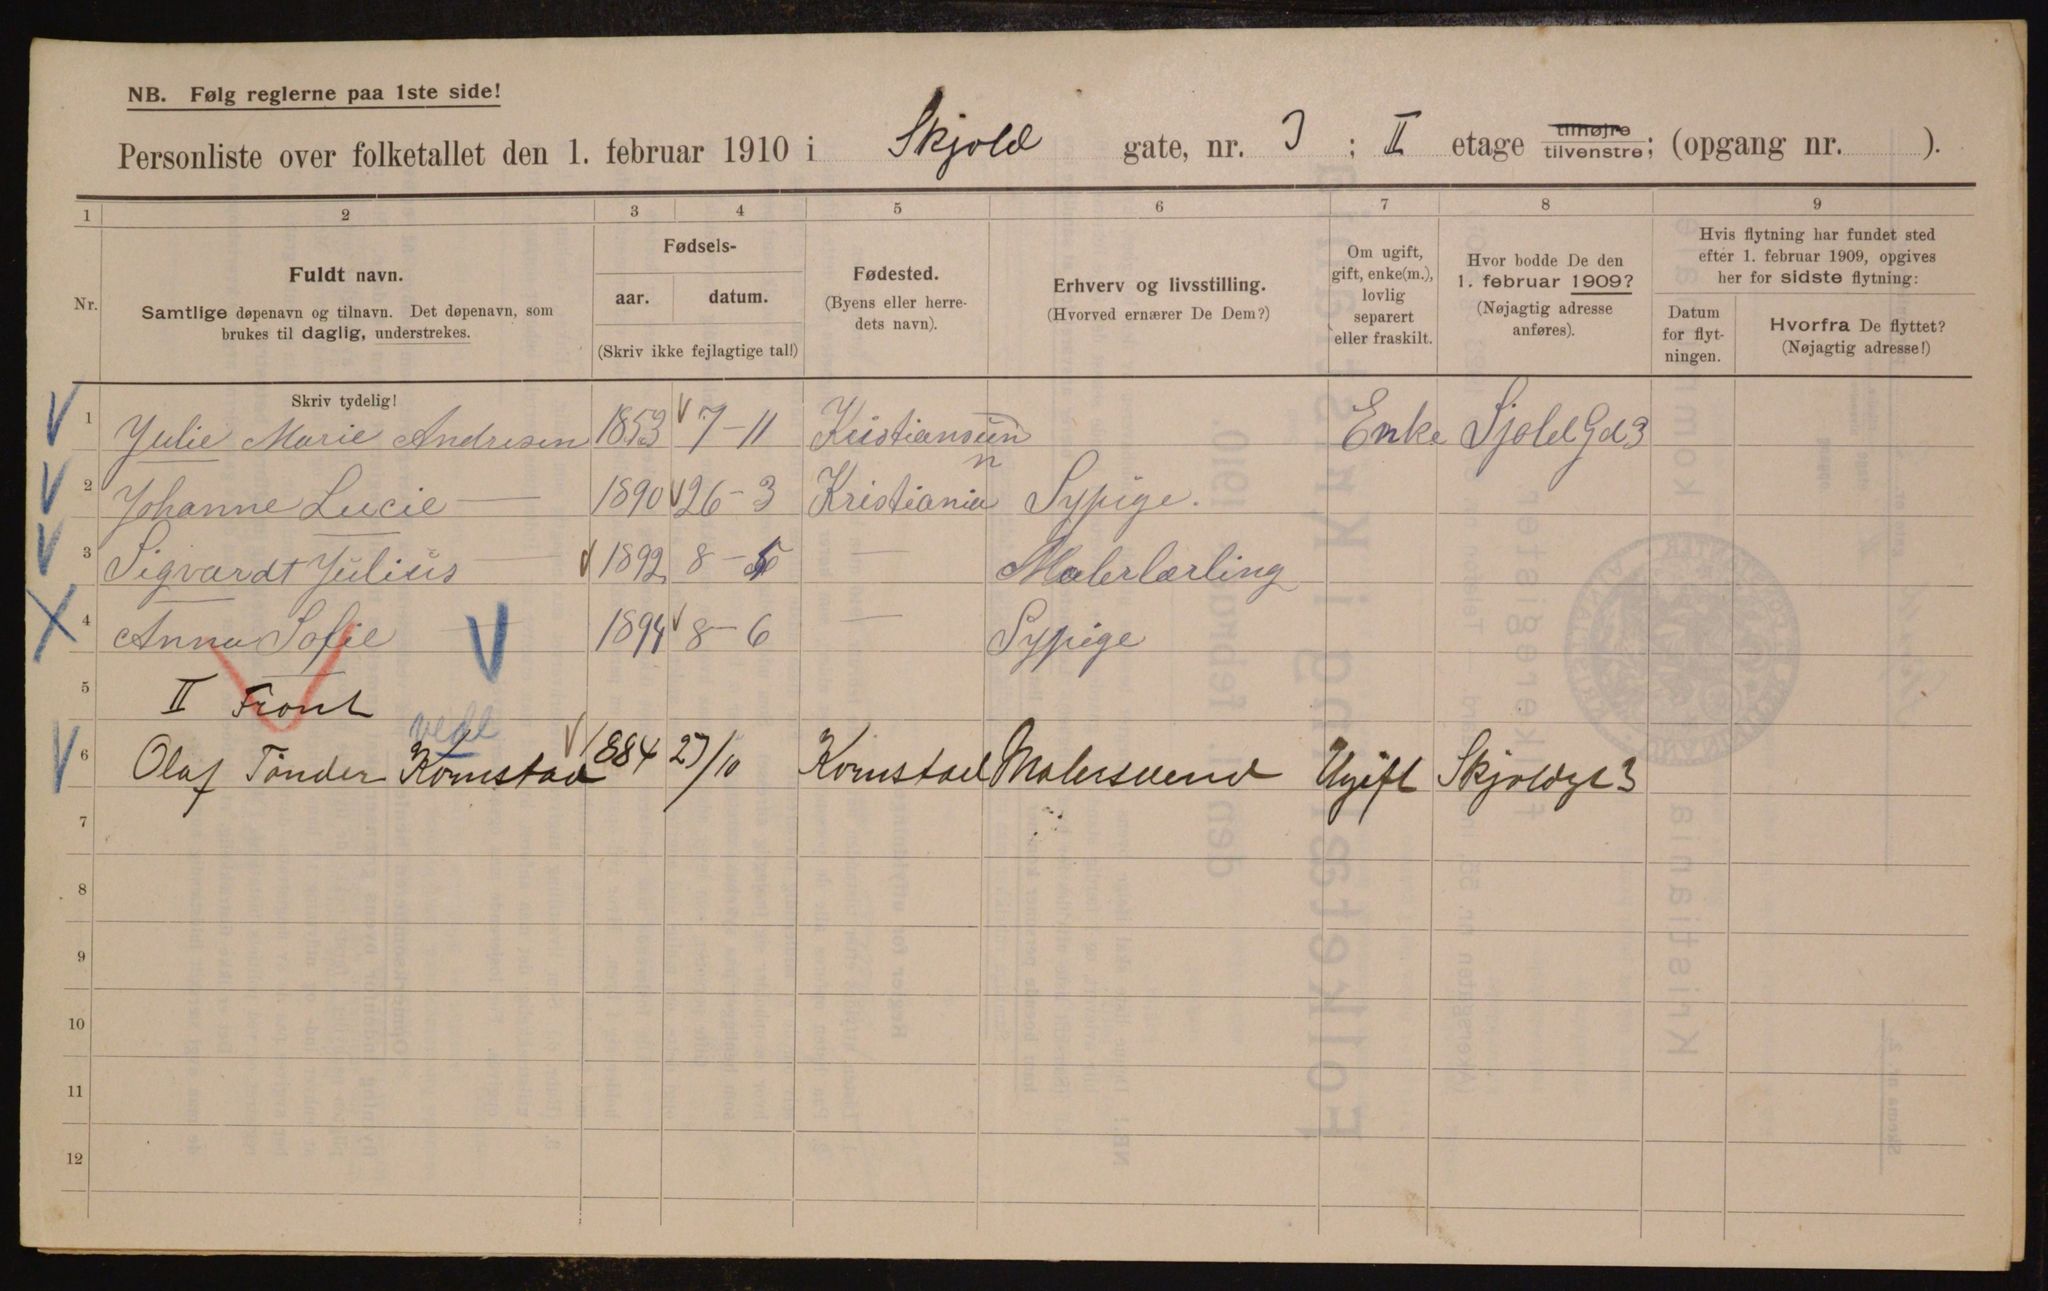 NB. Følg reglerne paa 1ste side!
Personliste over folketallet den 1. februar 1910 i Skjold gate, nr. 3; II etage tilhøjre tilvenstre; (opgang nr. ).
1 2 3 4 5 6 7 8 9
Nr.
Fuldt navn.
Samtlige døpenavn og tilnavn. Det døpenavn, som
brukes til daglig, understrekes.
Fødsels-
aar. datum.
(Skriv ikke fejlagtige tal!)
Fødested.
(Byens eller herre-
dets navn).
Erhverv og livsstilling.
(Hvorved ernærer De Dem?)
Om ugift,
gift, enke(m.),
lovlig
separert
eller fraskilt.
Hvor bodde De den
1. februar 1909?
(Nøjagtig adresse
anføres).
Hvis flytning har fundet sted
efter 1. februar 1909, opgives
her for sidste flytning:
Datum
for flyt-
ningen.
Hvorfra De flyttet?
(Nøjagtig adresse!)
Skriv tydelig!
1 Julie Marie Andresen 1853 7-11 Kristiansun Enke Sjold Gd 3
n
2 Johanne Lucie — 1890 26-3 Kristiania Sypige.
3 Sigvardt Julius — 1892 8-5 — Malerlærling
4 Anna Sofie — 1894 8-6 — Sypige
5 II Front
6 Olaf Tønder Kornstad 1884 27/10 Kornstad Malersvend Ugift Skjoldgt 3
7
8
9
10
11
12